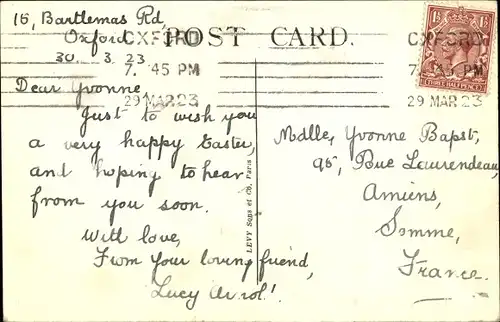 16, Bartlemas Rd,
Oxford
30. 3. 23
POST CARD.
OXFORD
7. 45 PM
29 MAR 23
OXFORD
7. 45 PM
29 MAR 23
THREE HALFPENCE
Dear Yvonne
Just to wish you
a very happy Easter,
and hoping to hear
from you soon.
With love,
From your loving friend,
Lucy
LEVY Sons et Co, Paris
Mdlle, Yvonne Bapst,
95, Rue Laurendeau,
Amiens,
Somme,
France.